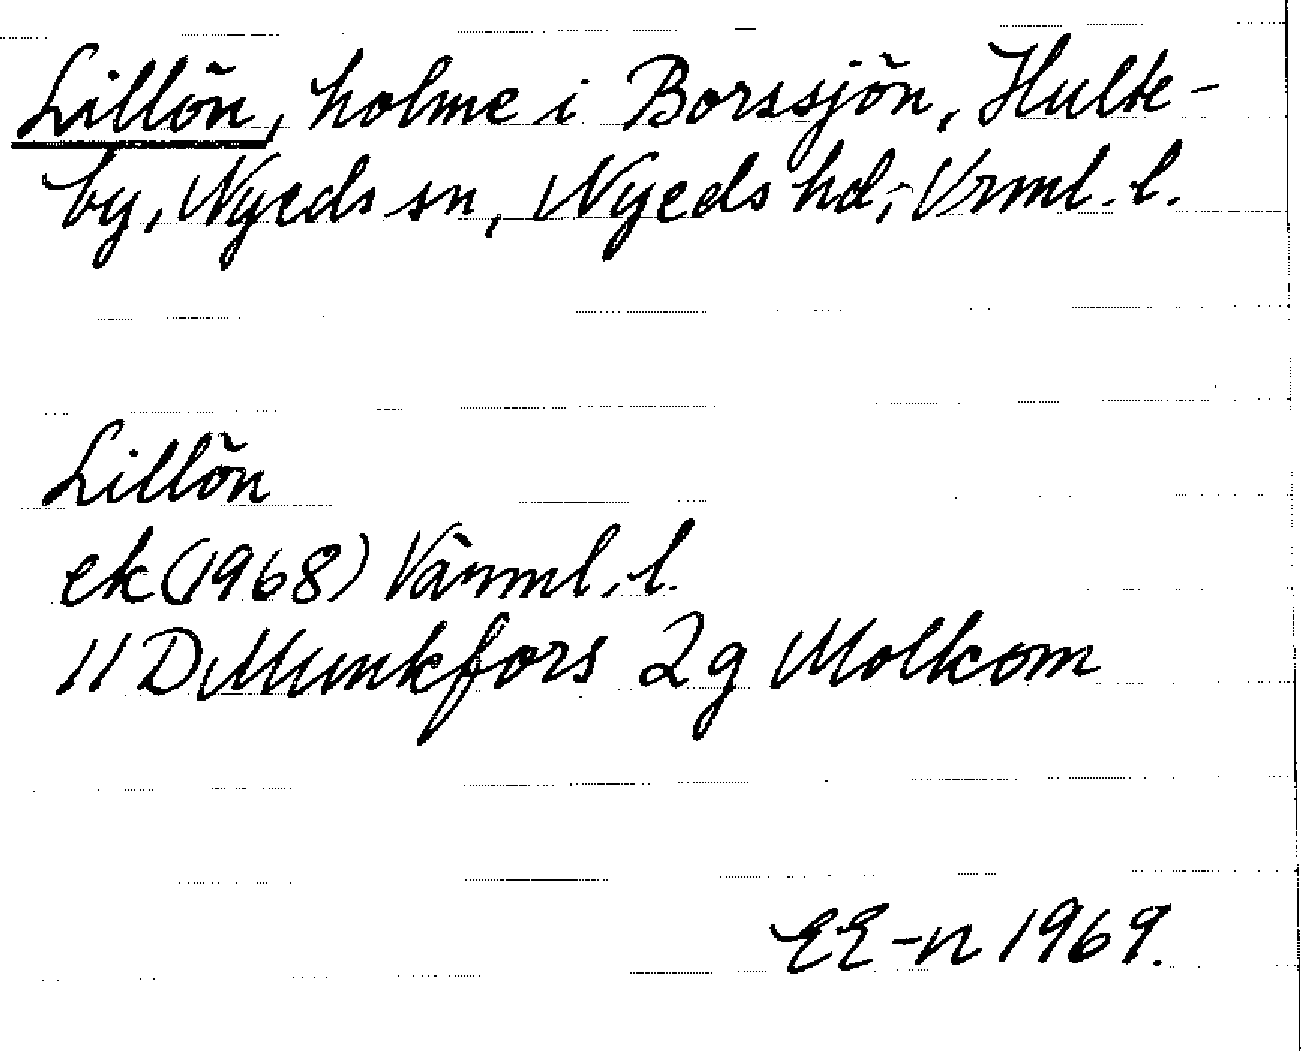 Lillön, holme i Borssjön, Hulte-
by, Nyeds sn, Nyeds hd, Vrml. l.
Lillön
ek (1968) Värml. l.
11 D Munkfors 2g Molkom
EE-n 1969.